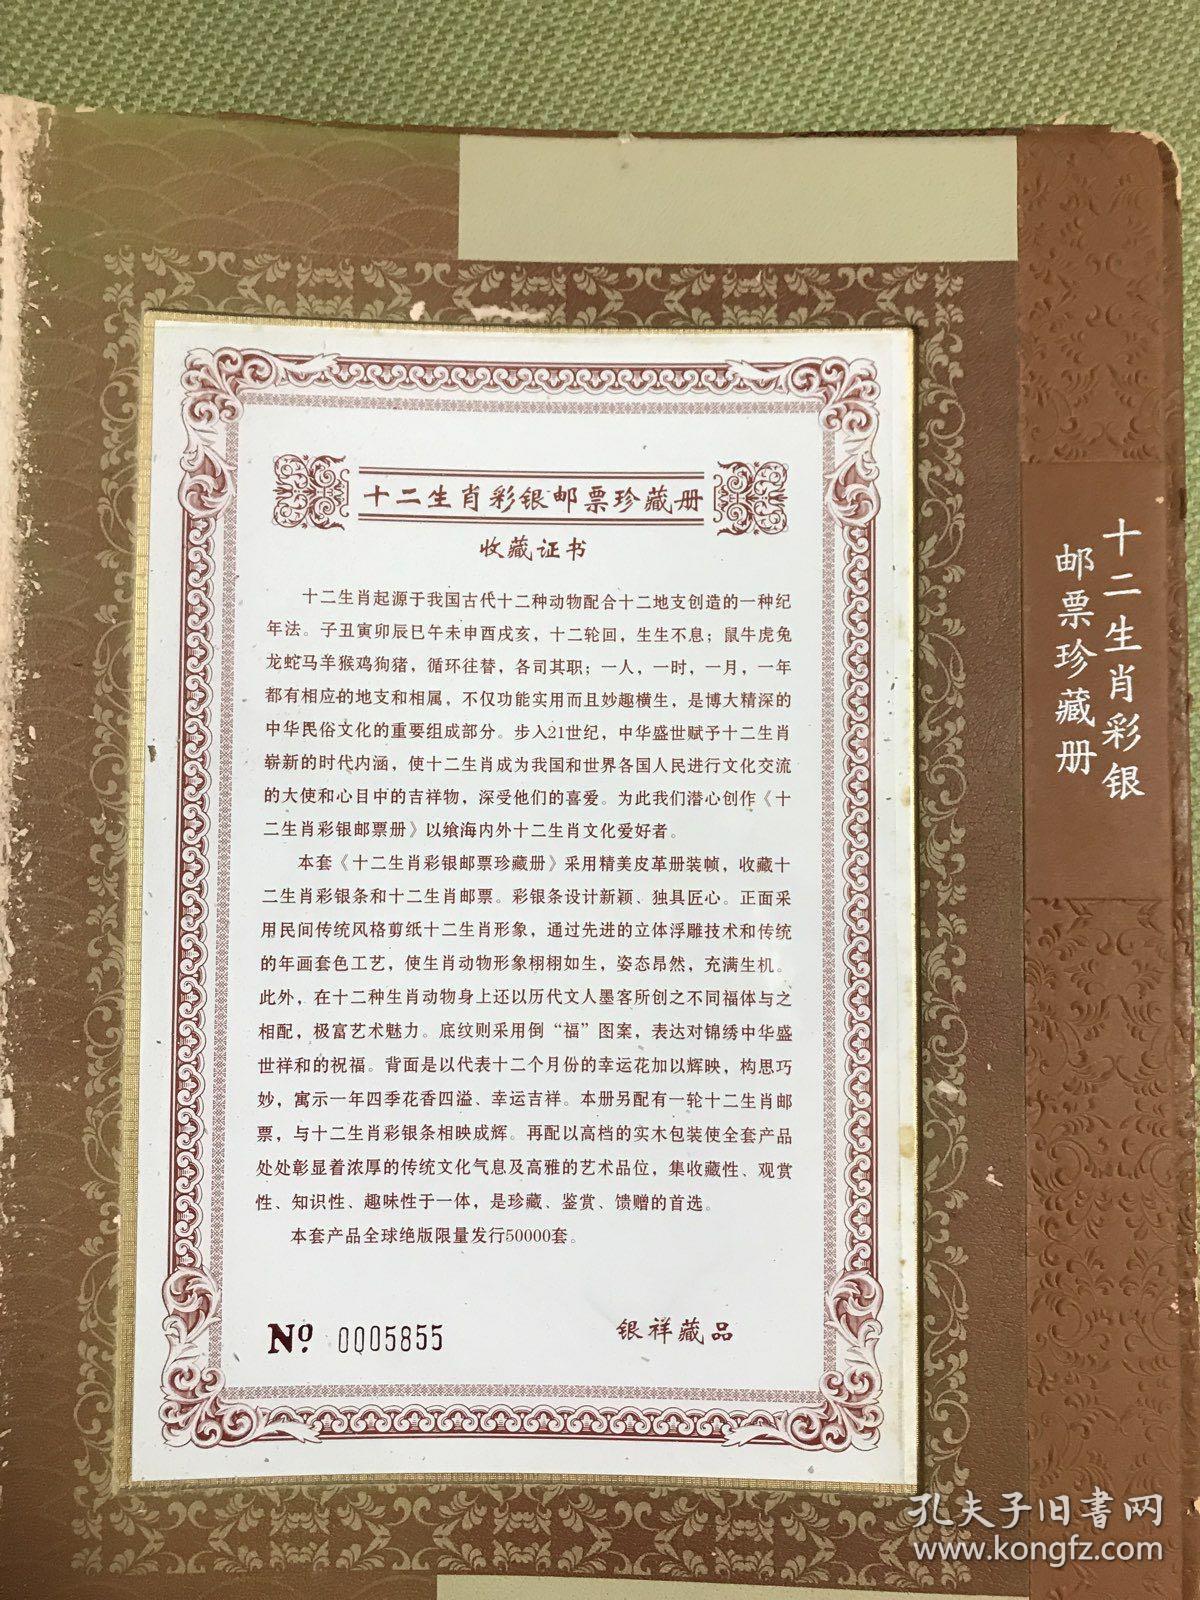 十二生肖彩银邮票珍藏册
收藏证书
十二生肖起源于我国古代十二种动物配合十二地支创造的一种纪
年法。子丑寅卯辰巳午未申酉戌亥，十二轮回，生生不息；鼠牛虎兔
龙蛇马羊猴鸡狗猪，循环往替，各司其职；一人，一时，一月，一年
都有相应的地支和相属，不仅功能实用而且妙趣横生，是博大精深的
中华民俗文化的重要组成部分。步入21世纪，中华盛世赋予十二生肖
崭新的时代内涵，使十二生肖成为我国和世界各国人民进行文化交流
的大使和心目中的吉祥物，深受他们的喜爱。为此我们潜心创作《十
二生肖彩银邮票册》以飨海内外十二生肖文化爱好者。
本套《十二生肖彩银邮票珍藏册》采用精美皮革册装帧，收藏十
二生肖彩银条和十二生肖邮票。彩银条设计新颖、独具匠心。正面采
用民间传统风格剪纸十二生肖形象，通过先进的立体浮雕技术和传统
的年画套色工艺，使生肖动物形象栩栩如生，姿态昂然，充满生机。
此外，在十二种生肖动物身上还以历代文人墨客所创之不同福体与之
相配，极富艺术魅力。底纹则采用倒“福”图案，表达对锦绣中华盛
世祥和的祝福。背面是以代表十二个月份的幸运花加以辉映，构思巧
妙，寓示一年四季花香四溢、幸运吉祥。本册另配有一轮十二生肖邮
票，与十二生肖彩银条相映成辉。再配以高档的实木包装使全套产品
处处彰显着浓厚的传统文化气息及高雅的艺术品位，集收藏性、观赏
性、知识性、趣味性于一体，是珍藏、鉴赏、馈赠的首选。
本套产品全球绝版限量发行50000套。
№ 0005855
银祥藏品
十二生肖彩银
邮票珍藏册
孔夫子旧書网
www.kongfz.com